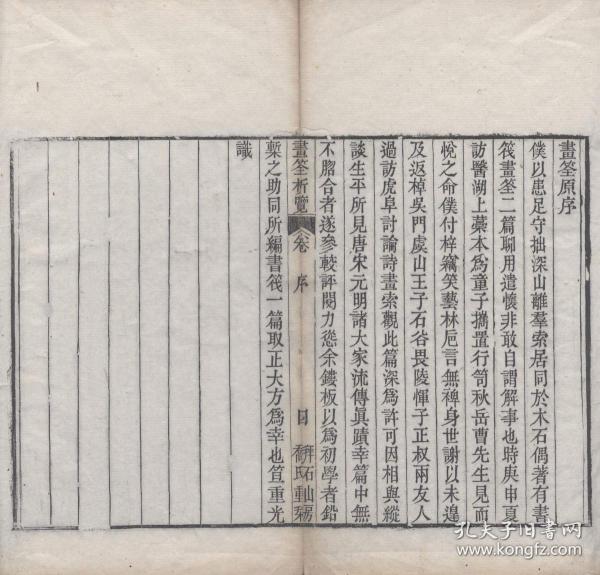 畫筌原序
僕以患足守拙深山離羣索居同於木石偶著有書
筏畫筌二篇聊用遣懷非敢自謂解事也時庚申夏
訪醫湖上藁本爲童子攜置行笥秋岳曹先生見而
悅之命僕付梓竊笑藝林巵言無裨身世謝以未遑
及返棹吳門虞山王子石谷毘陵惲子正叔兩友人
過訪虎阜討論詩畫索觀此篇深爲許可因相與縱
談生平所見唐宋元明諸大家流傳眞蹟幸篇中無
不脗合者遂參較評閱力慫余鏤板以爲初學者鉛
畫筌析覽 卷 序 日
槧之助同所編書筏一篇取正大方爲幸也笪重光
識
孔夫子旧书网
www.kongfz.com